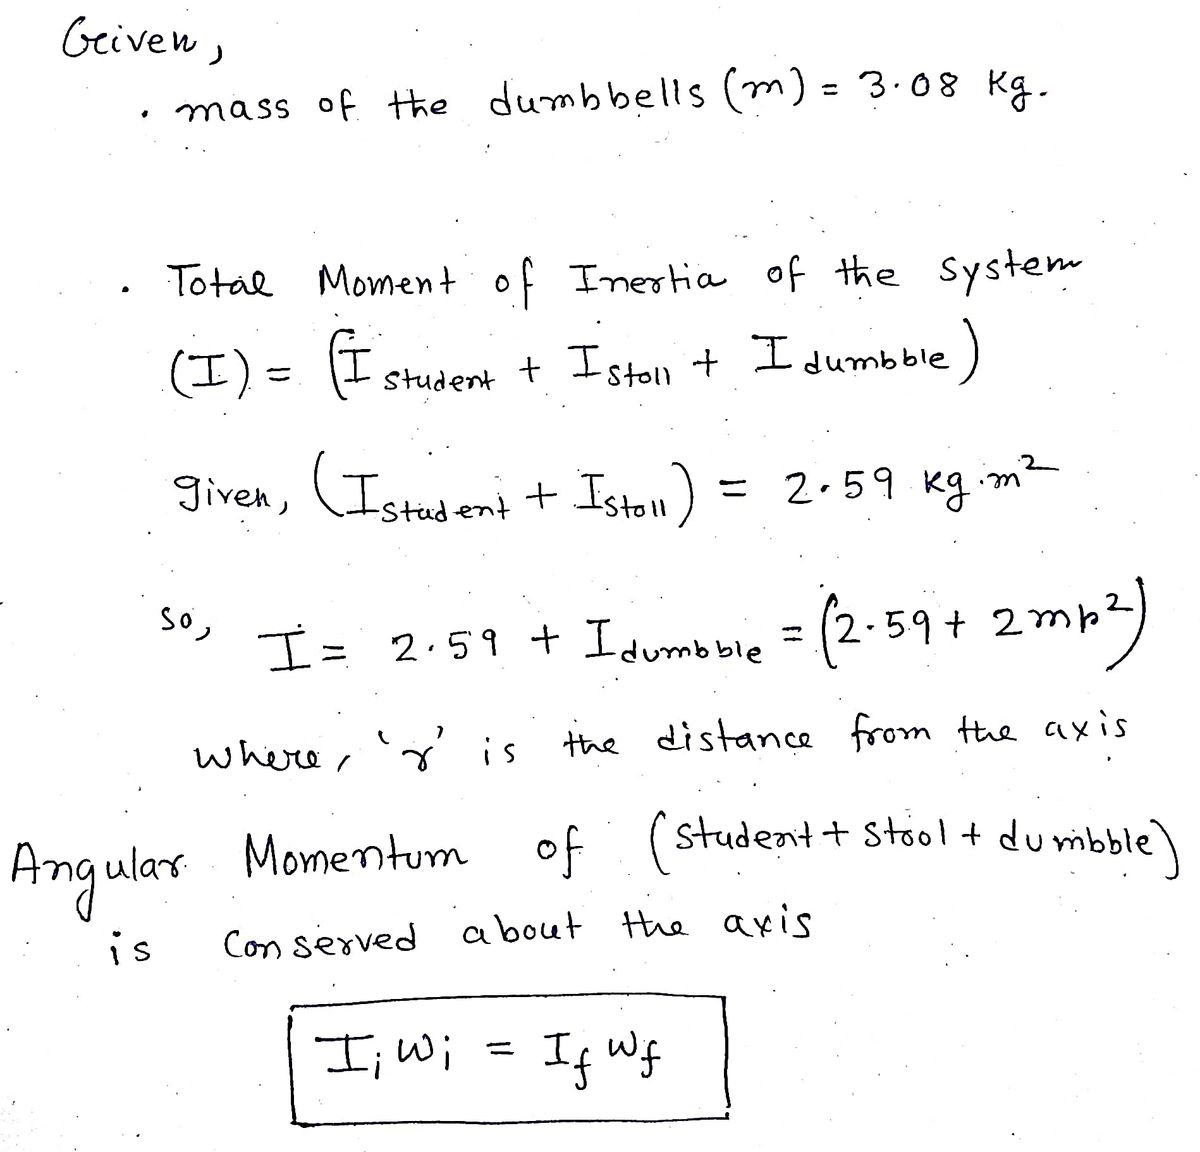 Given,
• mass of the dumbbells (m) = 3.08 kg.
• Total Moment of Inertia of the system
(I) = (I student + I stoll + I dumbble)
given, (I student + I stoll) = 2.59 kg.m²
so, I = 2.59 + I dumbble = (2.59 + 2mr²)
where, 'r' is the distance from the axis
Angular Momentum of (student + stool + dumbble)
is Conserved about the axis
I_i w_i = I_f w_f